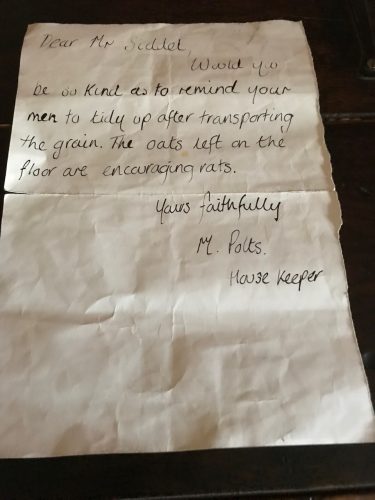 Dear Mr Siddel,
Would you
be so kind as to remind your
men to tidy up after transporting
the grain. The oats left on the
floor are encouraging rats.
Yours faithfully
M. Potts.
House Keeper